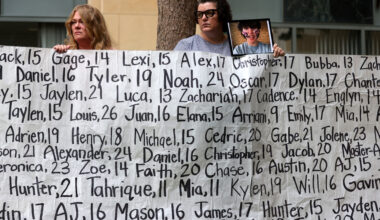 Jack, 15 Gage, 14 Lexi, 15 Alex, 17 Christopher, 15 Bubba, 13 Zach
Daniel, 16 Tyler, 19 Noah, 24 Oscar, 17 Dylan, 17 Chant
15 Jaylen, 21 Luca, 13 Zachariah, 17 Cadence, 14 Englyn, 14
Jaylen, 15 Louis, 26 Juan, 16 Elana, 15 Arran, 9 Emily, 17 Mia, 14
Adrien, 19 Henry, 18 Michael, 15 Cedric, 20 Gabe, 21 Jolene, 23
21 Alexander, 24 Daniel, 16 Christopher, 19 Jacob, 20
23 Zoe, 14 Faith, 20 Chase, 16 Austin, 20 AJ, 15
Hunter, 21 Tahrique, 11 Mia, 11 Kylen, 19 Will, 16 Gavin
17 AJ, 16 Mason, 16 James, 17 Hunter, 15